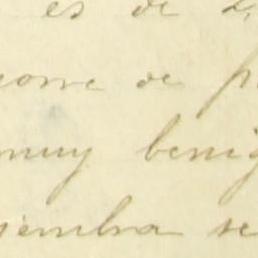 es de
de
muy benig
siembra se